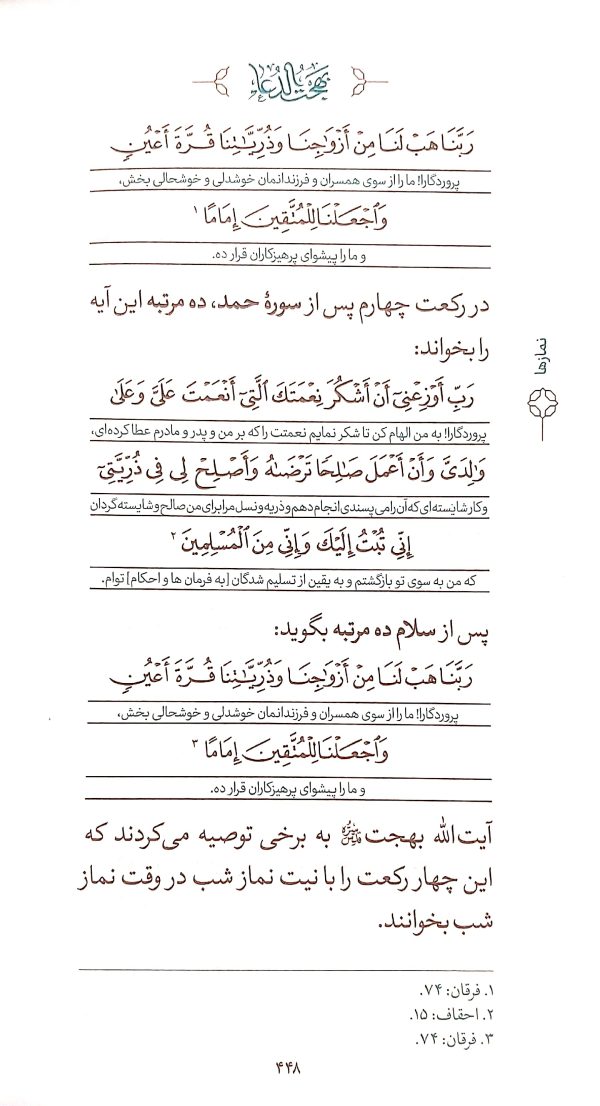 بهجت الدعاء
رَبَّنَا هَبْ لَنَا مِنْ أَزْوَٰجِنَا وَذُرِّيَّٰتِنَا قُرَّةَ أَعْيُنٍ
پروردگارا! ما را از سوی همسران و فرزندانمان خوشدلی و خوشحالی بخش،
وَٱجْعَلْنَا لِلْمُتَّقِينَ إِمَامًا ۱
و ما را پیشوای پرهیزکاران قرار ده.
در رکعت چهارم پس از سورهٔ حمد، ده مرتبه این آیه
را بخواند:
نمازها
رَبِّ أَوْزِعْنِىٓ أَنْ أَشْكُرَ نِعْمَتَكَ ٱلَّتِىٓ أَنْعَمْتَ عَلَىَّ وَعَلَىٰ
پروردگارا! به من الهام کن تا شکر نمایم نعمتت را که بر من و پدر و مادرم عطا کرده‌ای،
وَٰلِدَىَّ وَأَنْ أَعْمَلَ صَٰلِحًا تَرْضَىٰهُ وَأَصْلِحْ لِى فِى ذُرِّيَّتِىٓ
و کار شایسته‌ای که آن را می پسندی انجام دهم و ذریه و نسل مرا برای من صالح و شایسته گردان
إِنِّى تُبْتُ إِلَيْكَ وَإِنِّى مِنَ ٱلْمُسْلِمِينَ ۲
که من به سوی تو بازگشتم و به یقین از تسلیم شدگان [به فرمان ها و احکام] توام.
پس از سلام ده مرتبه بگوید:
رَبَّنَا هَبْ لَنَا مِنْ أَزْوَٰجِنَا وَذُرِّيَّٰتِنَا قُرَّةَ أَعْيُنٍ
پروردگارا! ما را از سوی همسران و فرزندانمان خوشدلی و خوشحالی بخش،
وَٱجْعَلْنَا لِلْمُتَّقِينَ إِمَامًا ۳
و ما را پیشوای پرهیزکاران قرار ده.
آیت‌الله بهجت به برخی توصیه می‌کردند که
این چهار رکعت را با نیت نماز شب در وقت نماز
شب بخوانند.
۱. فرقان: ۷۴.
۲. احقاف: ۱۵.
۳. فرقان: ۷۴.
۴۴۸